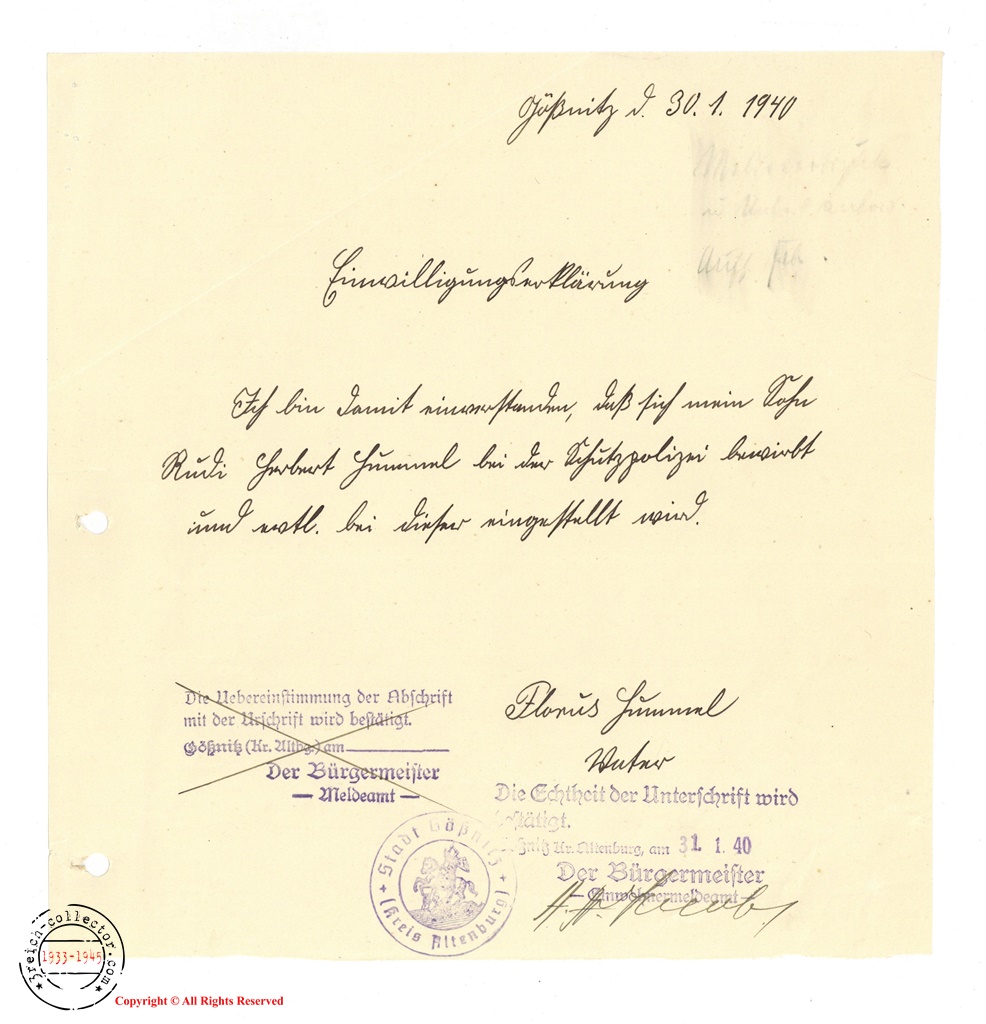 Gößnitz d. 30.1.1940
Einwilligungserklärung
Ich bin damit einverstanden, daß sich mein Sohn
Rudi Herbert Hummel bei der Schutzpolizei bewirbt
und evtl. bei dieser eingestellt wird.
Die Uebereinstimmung der Abschrift
mit der Urschrift wird bestätigt.
Gößnitz (Kr. Altbg.) am
Der Bürgermeister
— Meldeamt —
Florus Hummel
Vater
Die Echtheit der Unterschrift wird
bestätigt.
Gößnitz Kr. Altenburg, am 31. 1. 40
Der Bürgermeister
— Einwohnermeldeamt —
Stadt Gößnitz
(Kreis Altenburg)
3reich-collector.com
1933-1945
Copyright © All Rights Reserved